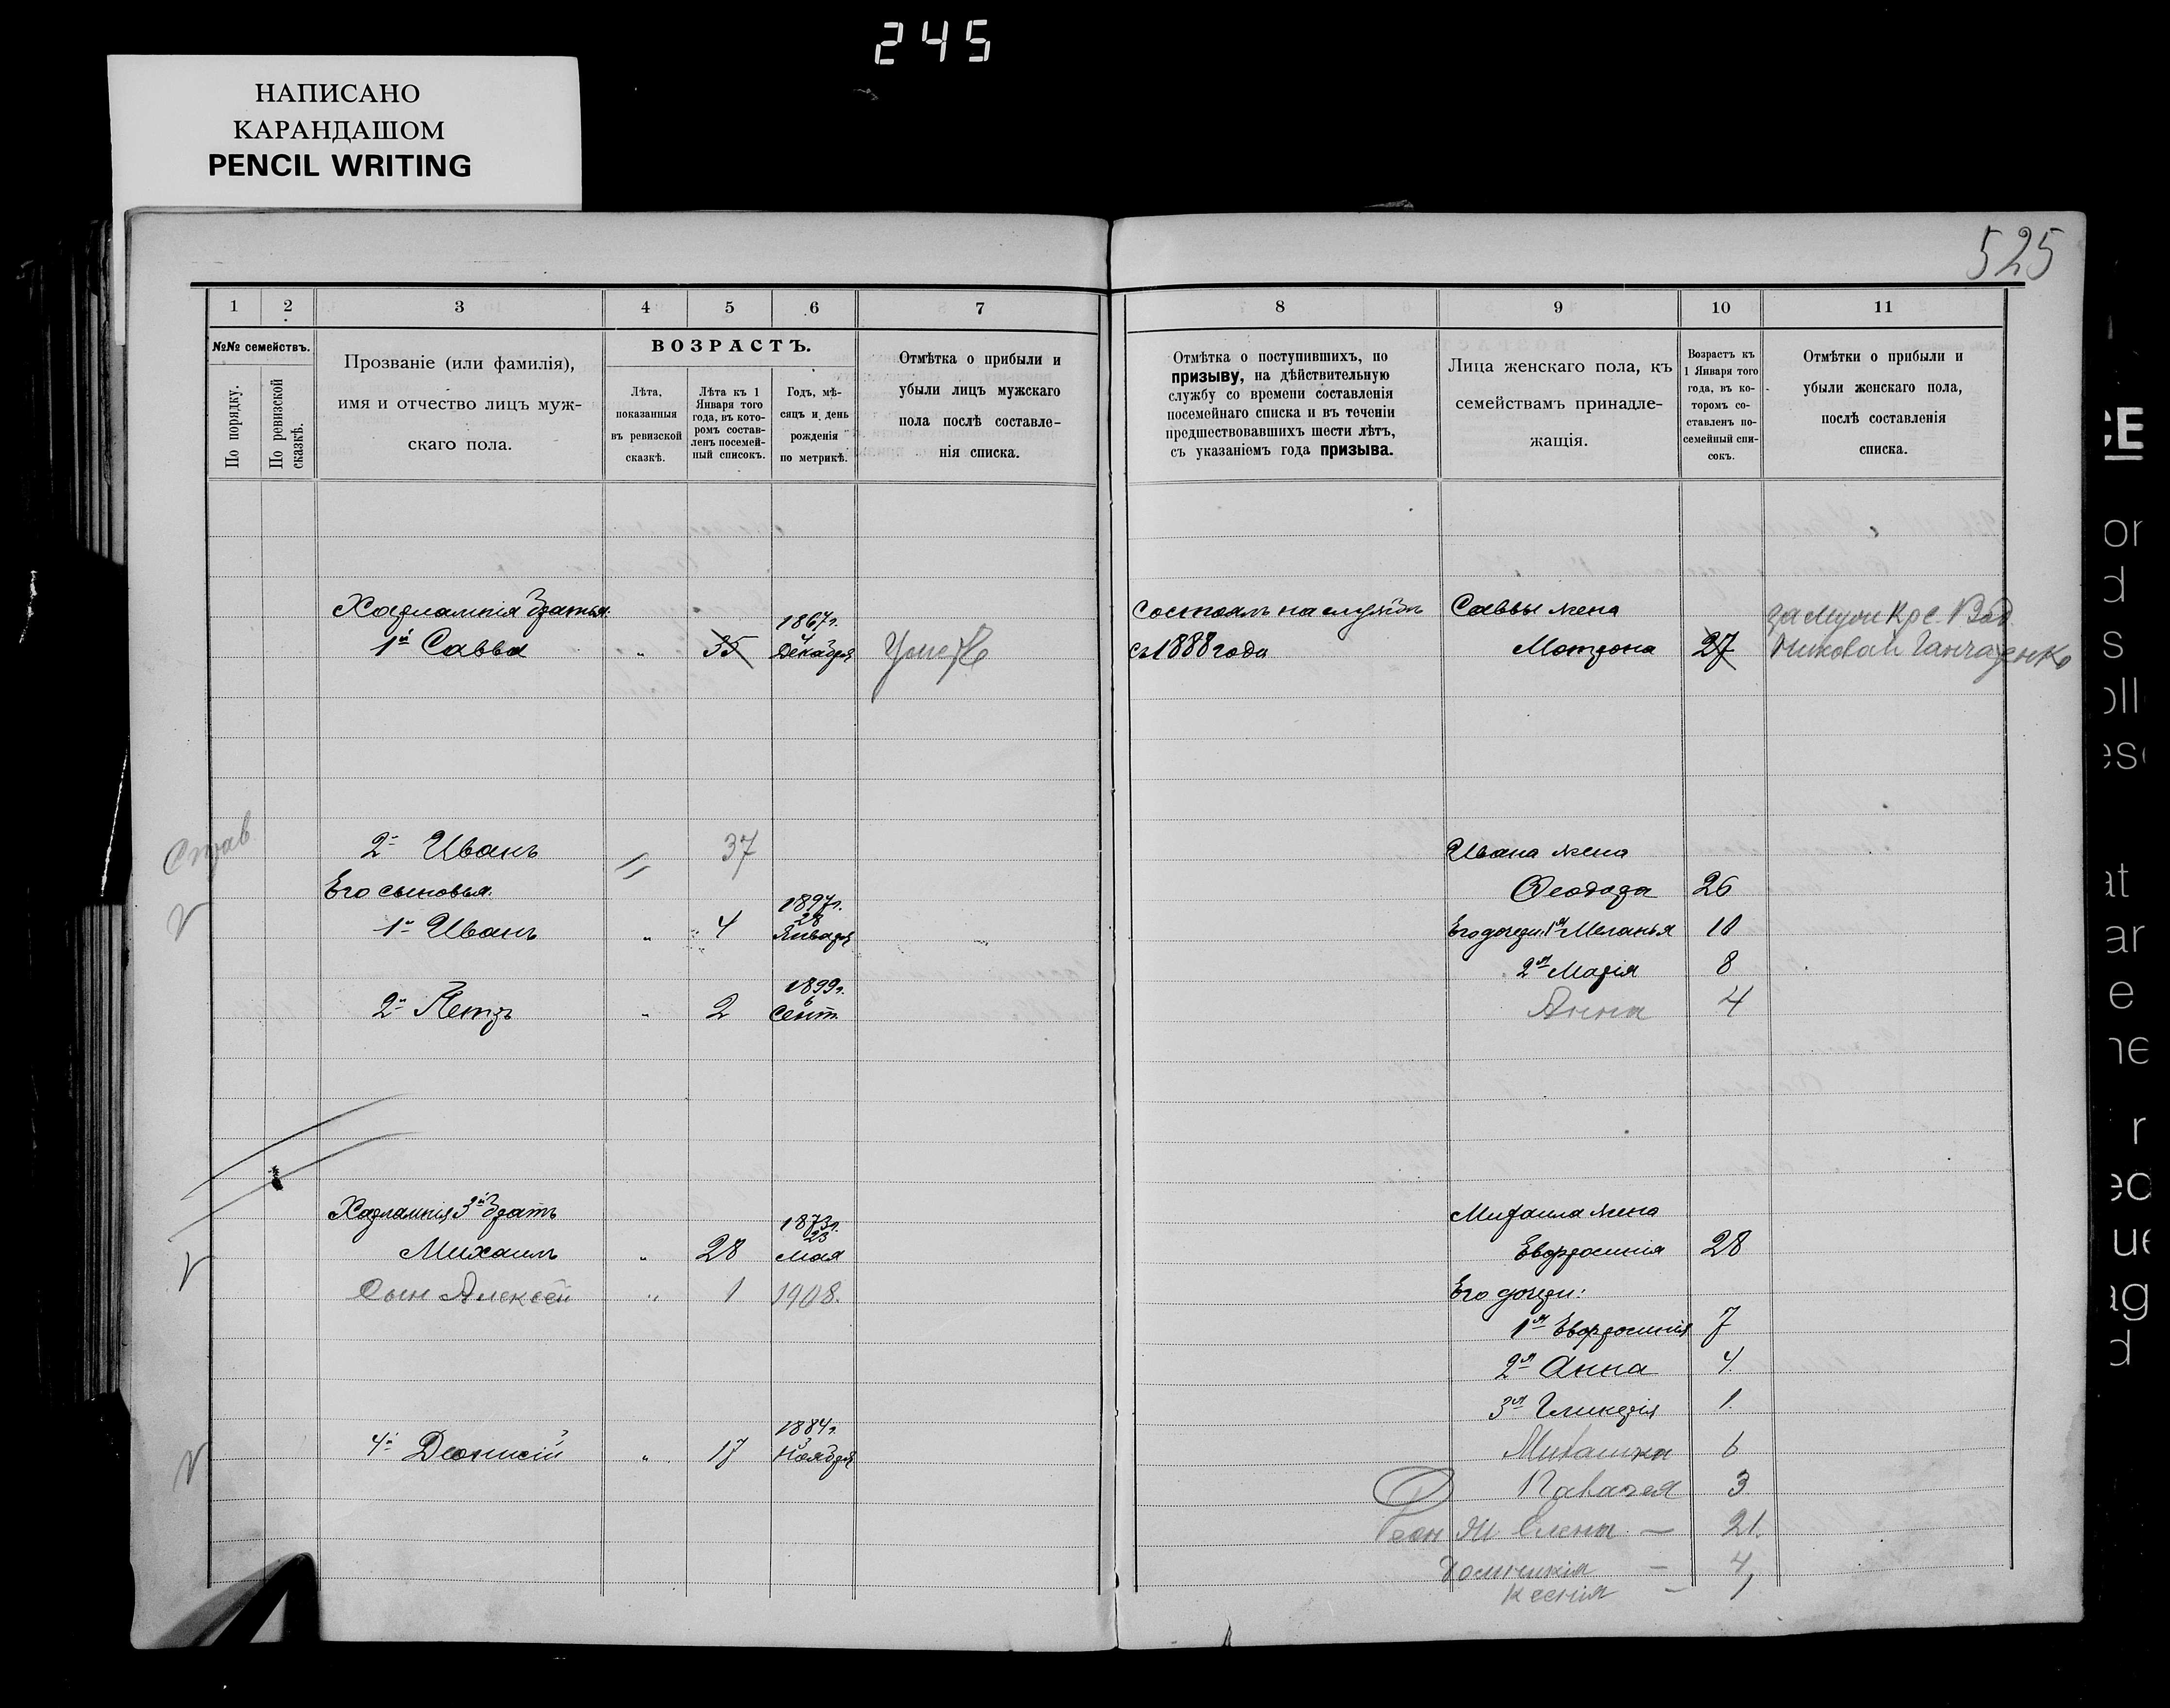 245
НАПИСАНО
КАРАНДАШОМ
PENCIL WRITING
525
1 2 3 4 5 6 7
№№ семействъ.
По порядку.
По ревизской сказкѣ.
Прозваніе (или фамилія),
имя и отчество лицъ муж-
скаго пола.
ВОЗРАСТЪ.
Лѣта,
показанныя
въ ревизской
сказкѣ.
Лѣта къ 1
Января того
года, въ кото-
ромъ состав-
ленъ посемей-
ный списокъ.
Годъ, мѣ-
сяцъ и день
рожденія
по метрикѣ.
Отмѣтка о прибыли и
убыли лицъ мужскаго
пола послѣ составле-
нія списка.
Харлампія братья
1867г.
1й Савва " 35 4 Декабря Умер
Став
2й Иванъ 37
Его сыновья.
1897г.
28
1й Иванъ " 4 Января
1899г.
6
2й Петръ " 2 Сент.
Харлампія 3й братъ
1873г.
23
Михаилъ " 28 Мая
Сын Алексей " 1 1908.
1884г.
3
4й Деонисій " 17 Ноября
8 9 10 11
Отмѣтка о поступившихъ, по
призыву, на дѣйствительную
службу со времени составленія
посемейнаго списка и въ теченіи
предшествовавшихъ шести лѣтъ,
съ указаніемъ года призыва.
Лица женскаго пола, къ
семействамъ принадле-
жащія.
Возрастъ къ
1 Января того
года, въ ко-
торомъ со-
ставленъ по-
семейный спи-
сокъ.
Отмѣтки о прибыли и
убыли женскаго пола,
послѣ составленія
списка.
Состоялъ на службѣ Саввы жена замуж Кре. Вод
съ 1888 года Мотрона 27 Николай Ганчаренко
Ивана жена
Феодора 26
Его дочери: 1я Меланья 10
2я Марія 8
Анна 4
Михаила жена
Евфросинія 28
Его дочери:
1я Евфросинія 7
2я Анна 4
3я Гликерія 1
6
3
Ж. Елена — 21
— 4
Ксенія — 1